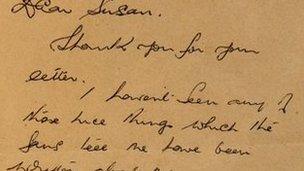 Dear Susan.
Thank you for your
letter.
I haven't seen any of
those nice things which the
fans tell me have been